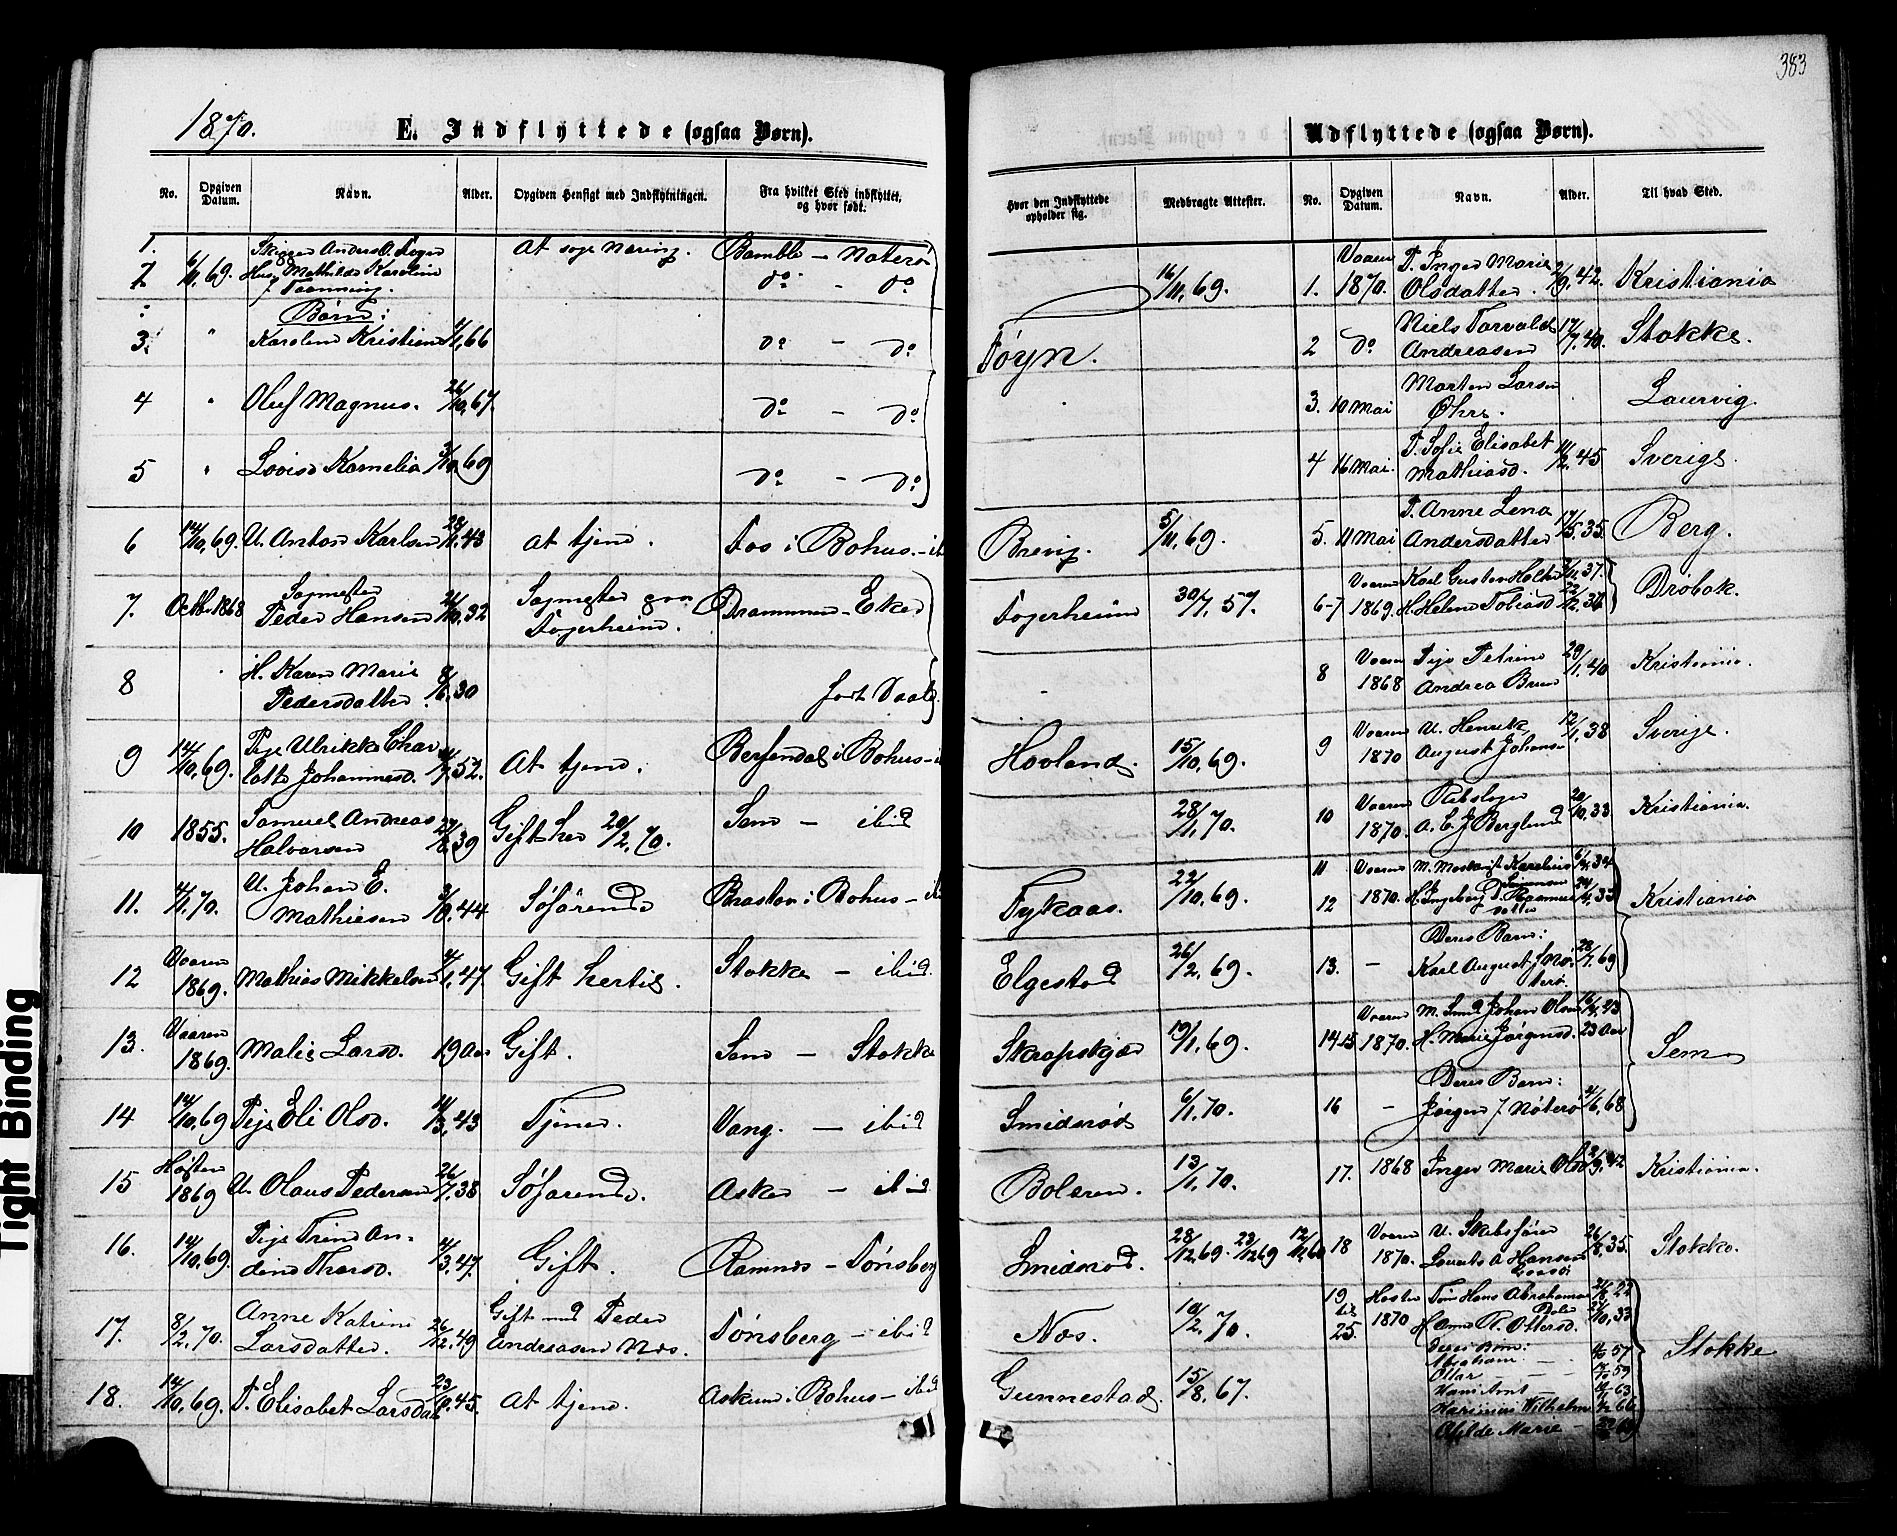 383
1870.
E. Indflyttede (ogsaa Børn).
No. Opgiven Datum. Navn. Alder. Opgiven Hensigt med Indflytningen. Fra hvilket Sted indflyttet, og hvor født.
1.
2 6/11, 69. Hus. Mathilde Karoline At søge Næring. Bamble - Noterø
do - do
Børn:
3. " Karoline Kristiane 66 do - do
4 " Oluf Magnus. 26/10, 67. do - do
5 " Lovise Kornelia 3/10, 69 do - do
6 14/10, 69. U. Anton Karlsen 28/11, 43 At tjene. Fos i Bohus - ibid
7. Octb. 1868 Sagmester
Peder Hansen 32 Sagmester paa
Fogerheim. Drammen - Eker
8 H. Karen Marie
Pedersdatter. 8/6, 30
9 14/10, 69. Pige Ulrikke Char
lotte Johannesd. 52. At tjene. Bohus
10 1855. Samuel Andreas
Halvorsen 27/8, 39 Gift her 20/2, 70. Sem - ibid
11. 70. U. Johan E.
Mathiesen 44 Søfarende i Bohus - ibid
12 Vaaren
1869. Mathias Mikkelsen 47 Gift hertil. Stokke - ibid.
13. Vaaren
1869. Malie Larsd. 19 Aar Gift. Sem - Stokke
14 14/10, 69 Pige Eli Olsd. 43 Tjene. Vang. - ibid
15 Høsten
1869 U. Olaus Pedersen 26/7, 38 Søfarende. Asker - ibid
16. 14/10, 69. Pige Trine An-
dine Thorsd. 47. Gift. Ramnes - Tønsberg
17. 8/2, 70. Anne Katrine
Larsdatter. 26/12, 49 Gift med Peder
Andreasen Næs. Tønsberg - ibid
18. 14/10, 69. P. Elisabet Larsdat 23/10, 45. At tjene. Askum i Bohus - ibid
Udflyttede (ogsaa Børn).
Hvor den Indflyttede opholder sig. Medbragte Attester. No. Opgiven Datum. Navn. Alder. Til hvad Sted.
Føyn. 16/11, 69. 1. Vaaren
1870. P. Inger Marie
Olsdatter. 2/9, 42. Kristiania
2 do Niels Torvald
Andreasen 17/7, 40. Stokke.
3. 10 Mai Morten Larsen
Øhre. Laurvig
4 16 Mai. P. Sofie Elisabet
Mathiasd. 11/2, 45 Sverige.
Brevig. 5/11, 69. 5. 11 Mai P. Anne Lena
Andersdatter 17/5, 35. Berg.
Fogerheim 30/7, 57. 6-7 Vaaren
1869. Karl Gustav Holter 37.
H. Helene Tobiasd 22/12, 36 Drøbak.
8 Vaaren
1868 Pige Petrine
Andrea Bruun 29/1, 40 Kristiania.
Hovland. 15/10, 69. 9 Vaaren
1870 U. Henrik
August Johansen 12/1, 38 Sverige.
28/1, 70. 10 Vaaren
1870. Rebslager
A. E. J. Berglund 20/10, 33 Kristiania.
Fykaas. 22/10, 69. 11 Vaaren M. Karelius 6/4, 34
12 1870. H. Ingeborg D. Rasmus
datter 33 Kristiania
Elgestad 26/2, 69. 13. - Deres Barn:
Karl August 28/7, 69
19/1, 69. 14 15 Vaaren
1870. M. Smed Johan Olsen 43
H. Marie Jørgensd. 23 Aar Sem
Smidsrød 6/1, 70. 16 - Deres Barn:
Jørgen f Nøterø 68
Bolæren. 13/1, 70. 17. 1868 Inger Marie Olsd 2/9, 42 Kristiania.
Smidsrød. 28/12 69. 23/12 69 12/12, 69 18 Vaaren
1870. U. Skibsfører
Hansen 26/8, 35. Stokke.
Næs. 10/2, 70. 19
til
25. Høsten
1870 Hans Abrahamsen 22
H. Anne P. Ottersd. 27/10, 33 Stokke
Deres Børn:
Abraham - 57
Ottar - 59
Gunnestad. 15/8, 67. Hans Arnt 63
Wilhelm 66
Marie 69